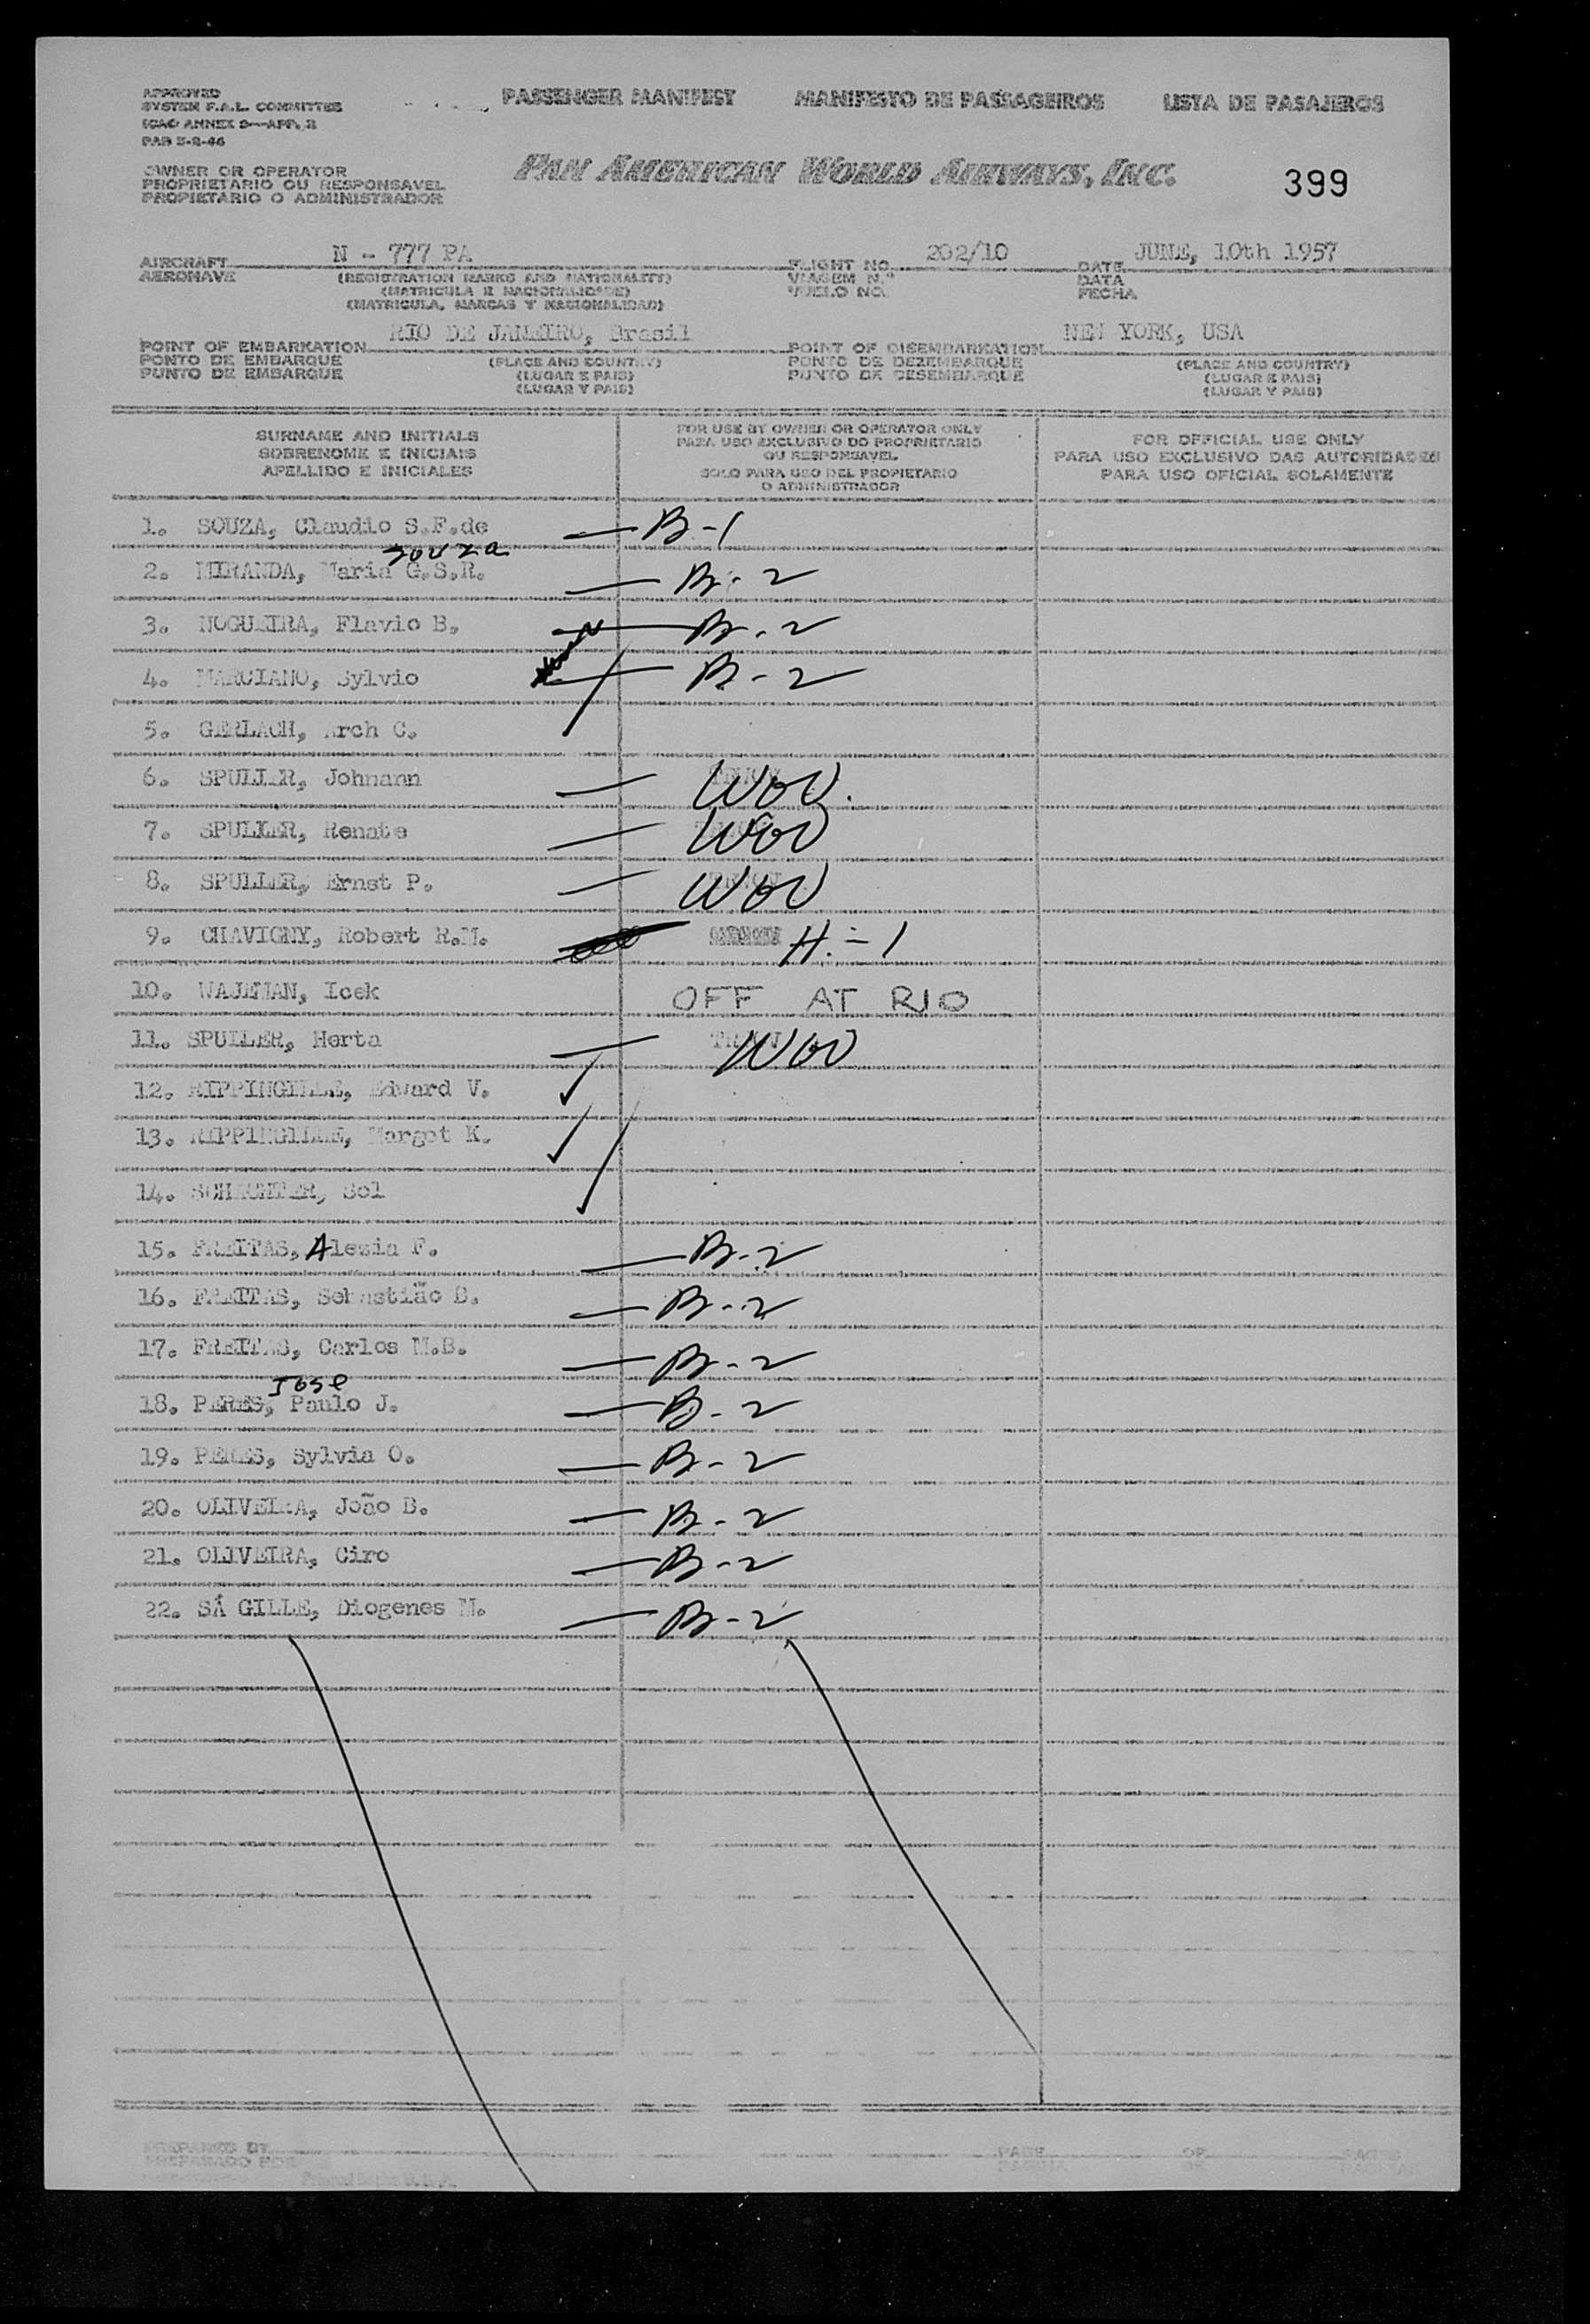 APPROVED
SYSTEM F.A.L. COMMITTEE
ICAO ANNEX 9—APP. 2
PAB 5-2-46
PASSENGER MANIFEST MANIFESTO DE PASSAGEIROS LISTA DE PASAJEROS
OWNER OR OPERATOR
PROPRIETARIO OU RESPONSAVEL
PROPIETARIO O ADMINISTRADOR
PAN AMERICAN WORLD AIRWAYS, INC.
399
AIRCRAFT N - 777 PA FLIGHT NO. 202/10 DATE JUNE, 10th 1957
AERONAVE (REGISTRATION MARKS AND NATIONALITY) VIAGEM N.º DATA
(MATRICULA E NACIONALIDADE) VUELO NO. FECHA
(MATRICULA, MARCAS Y NACIONALIDAD)
POINT OF EMBARKATION RIO DE JANEIRO, Brasil POINT OF DISEMBARKATION NEW YORK, USA
PONTO DE EMBARQUE (PLACE AND COUNTRY) PONTO DE DEZEMBARQUE (PLACE AND COUNTRY)
PUNTO DE EMBARQUE (LUGAR E PAIS) PUNTO DE DESEMBARQUE (LUGAR E PAIS)
(LUGAR Y PAIS) (LUGAR Y PAIS)
SURNAME AND INITIALS
SOBRENOME E INICIAIS
APELLIDO E INICIALES
FOR USE BY OWNER OR OPERATOR ONLY
PARA USO EXCLUSIVO DO PROPRIETARIO
OU RESPONSAVEL
SOLO PARA USO DEL PROPIETARIO
O ADMINISTRADOR
FOR OFFICIAL USE ONLY
PARA USO EXCLUSIVO DAS AUTORIDADES
PARA USO OFICIAL SOLAMENTE
1. SOUZA, Claudio S.F.de — B-1
Souza
2. MIRANDA, Maria G.S.R. — B-2
3. NOGUEIRA, Flavio B. — B-2
4. MARCIANO, Sylvio — B-2
5. GERLACH, Arch C.
6. SPULLER, Johnann — WOV.
7. SPULLER, Renate — WOV
8. SPULLER, Ernst P. — WOV
9. CHAVIGNY, Robert R.M. H.-1
10. WAJEMAN, Icek OFF AT RIO
11. SPULLER, Herta — WOV
12. RIPPINGILLE, Edward V.
13. RIPPINGILLE, Margot K.
14. Sol
15. FREITAS, Alezia F. — B-2
16. FREITAS, Sebastião B. — B-2
17. FREITAS, Carlos M.B. — B-2
Jose
18. PERES, Paulo J. — B-2
19. PERES, Sylvia O. — B-2
20. OLIVEIRA, João B. — B-2
21. OLIVEIRA, Ciro — B-2
22. SÁ GILLE, Diogenes M. — B-2
PREPARED BY PAGE OF PAGES
PREPARADO POR